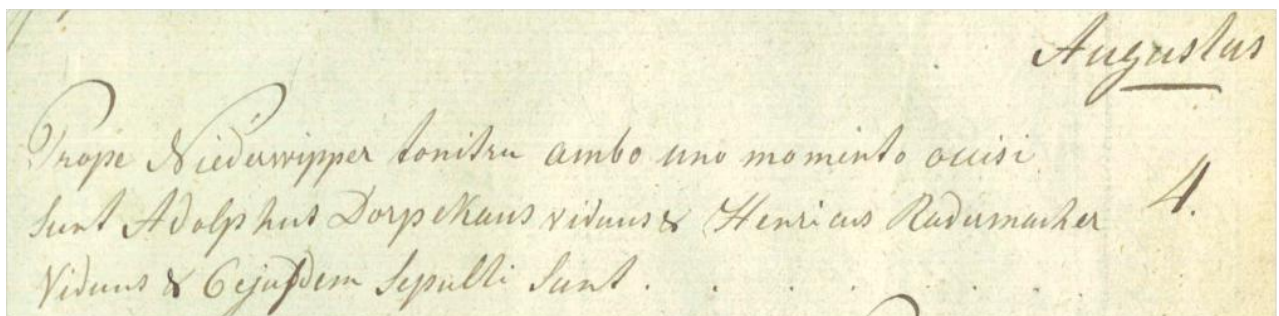 Augustus
Prope Niederwipper tonitru ambo uno momento occisi
sunt Adolphus Dorpekaus viduus & Henricus Radumacher 4.
viduus & 6 ejusdem sepulti sunt.